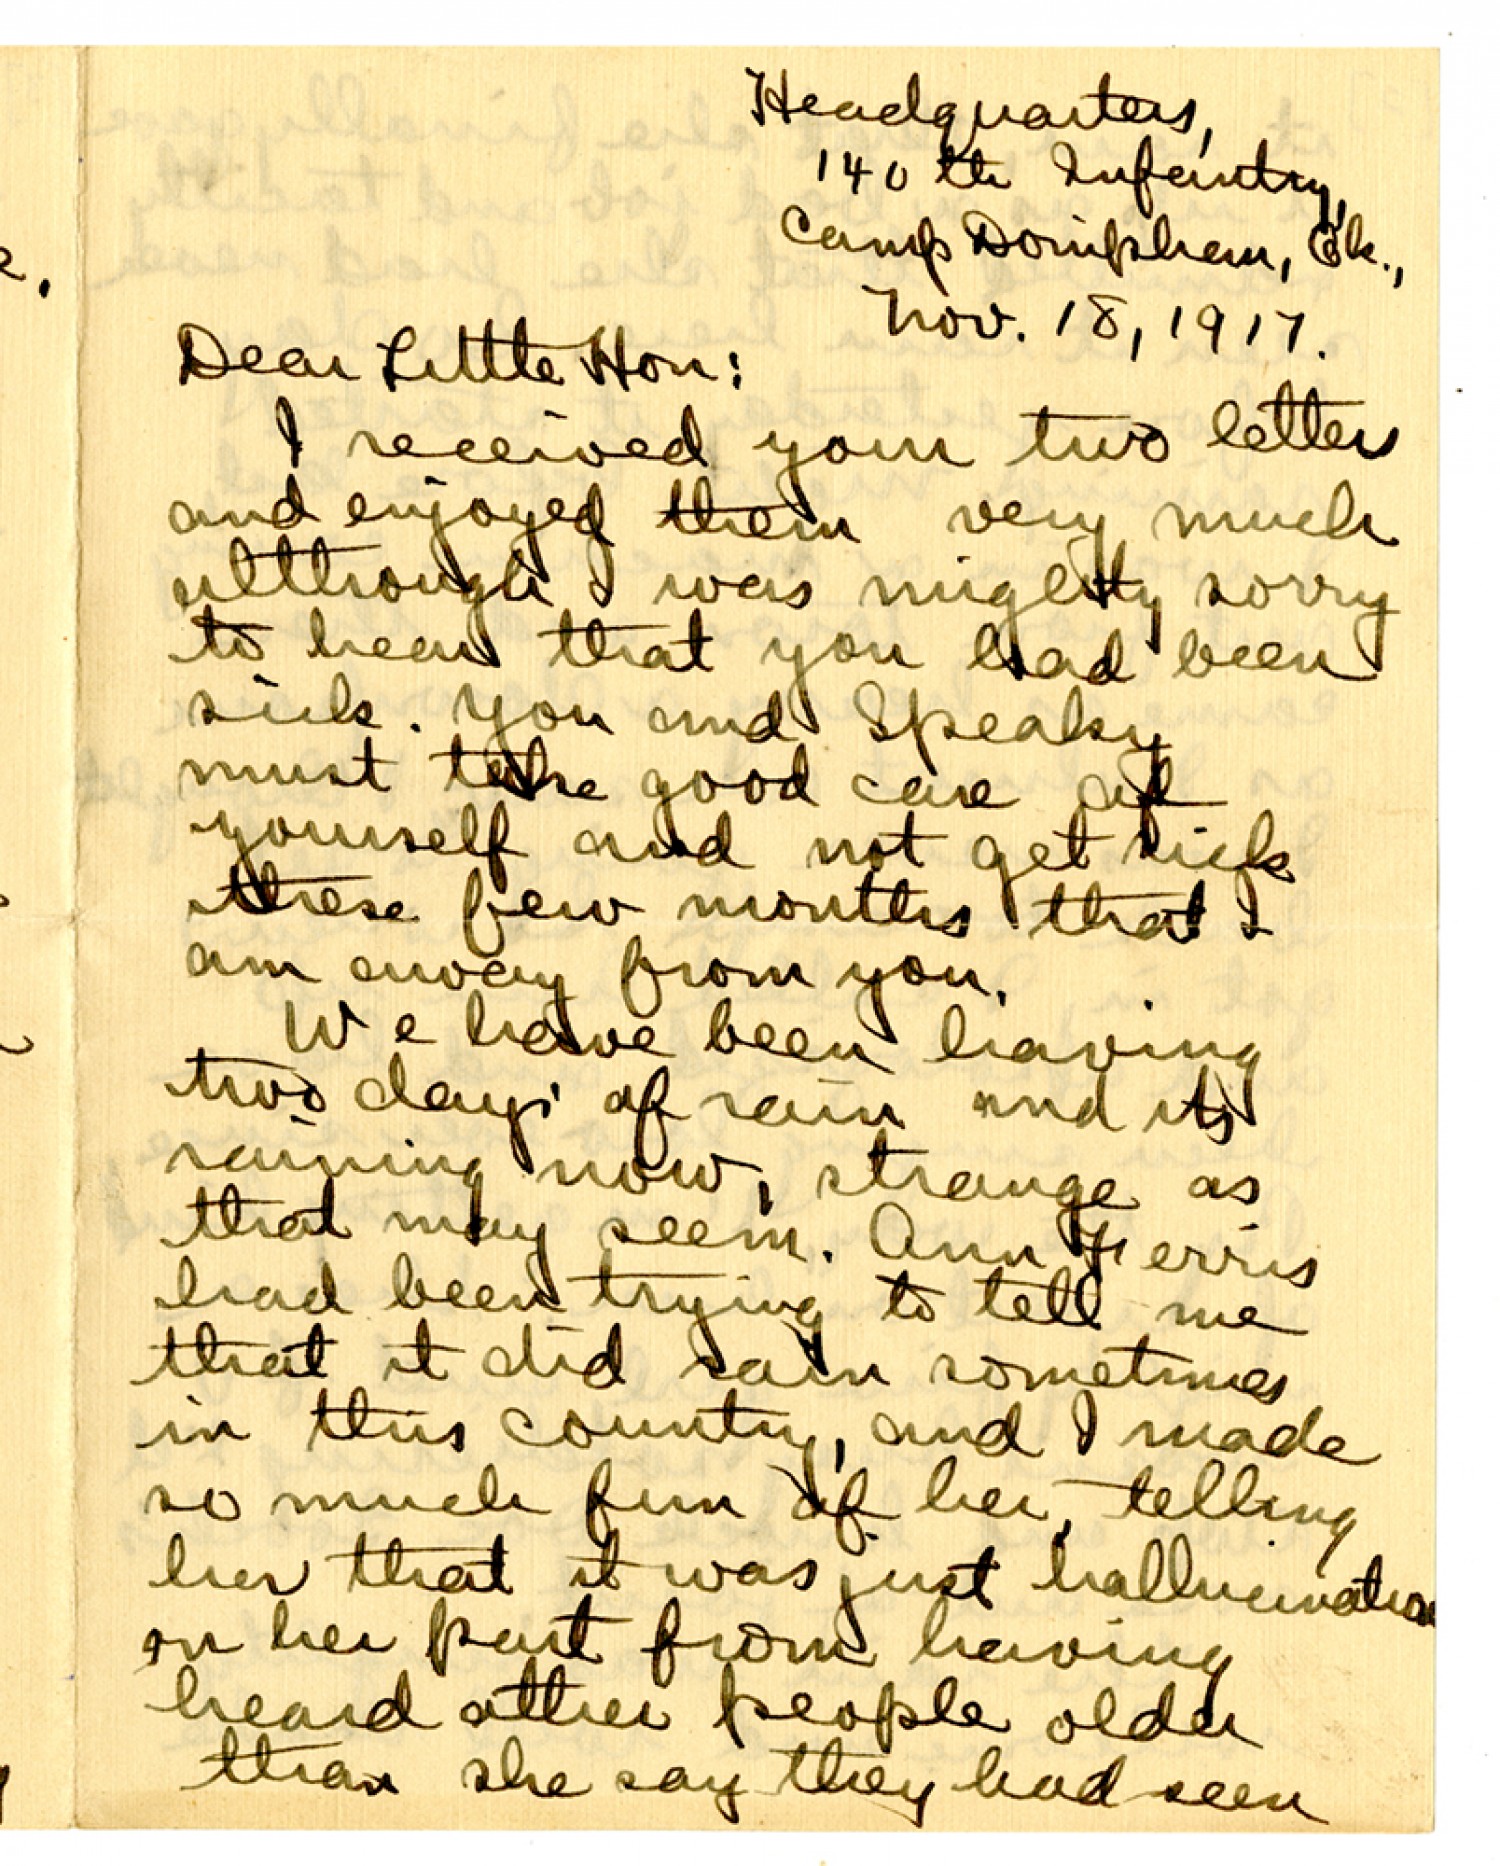 Headquarters,
140th Infantry,
Camp Doniphan, Ok.,
Nov. 18, 1917.
Dear Little Hon:
I received your two letters
and enjoyed them very much
although I was mighty sorry
to hear that you had been
sick. You and Speaky
must take good care of
yourself and not get sick
these few months that I
am away from you.
We have been having
two days of rain and its
raining now, strange as
that may seem. Ann Ferris
had been trying to tell me
that it did rain sometimes
in this country, and I made
so much fun of her, telling
her that it was just hallucination
on her part from having
heard other people older
than she say they had seen